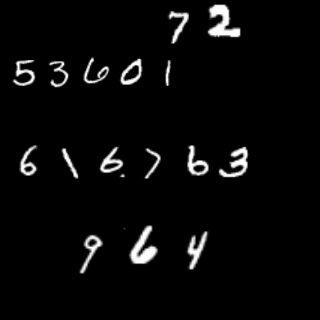 7 2
5 3 6 0 1
6 1 6 7 6 3
9 6 4